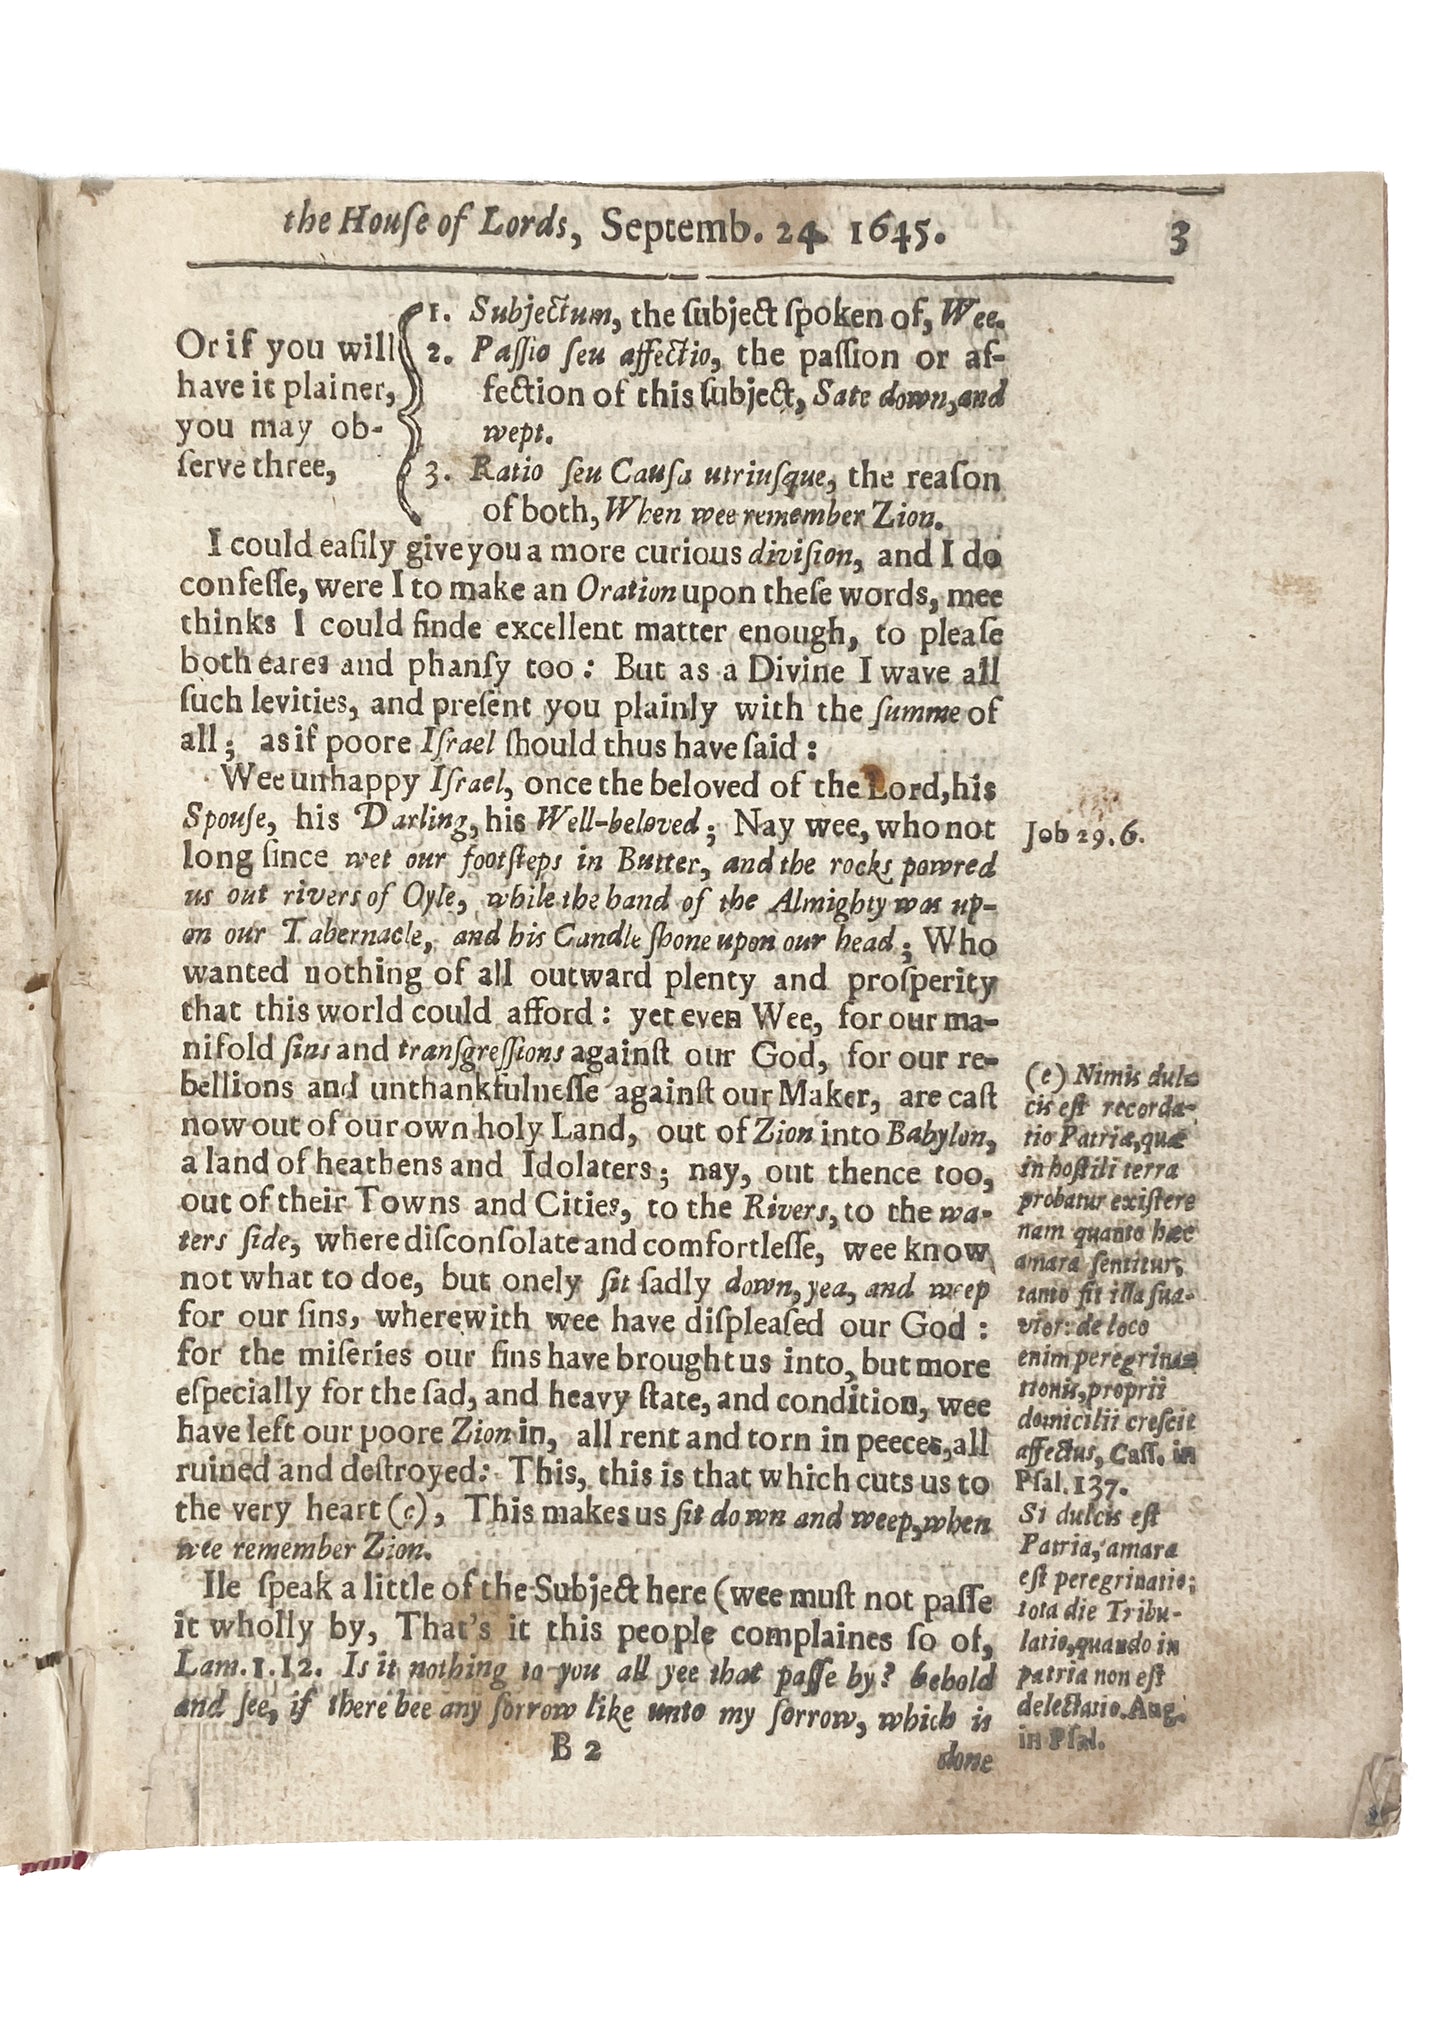 the Houſe of Lords, Septemb. 24. 1645. 3
Or if you will
have it plainer,
you may ob-
ſerve three,
1. Subjectum, the ſubject ſpoken of, Wee.
2. Paſſio ſeu affectio, the paſſion or af-
fection of this ſubject, Sate down, and
wept.
3. Ratio ſeu Cauſa utriuſque, the reaſon
of both, When wee remember Zion.
I could eaſily give you a more curious diviſion, and I do
confeſſe, were I to make an Oration upon theſe words, mee
thinks I could finde excellent matter enough, to pleaſe
both eares and phanſy too: But as a Divine I wave all
ſuch levities, and preſent you plainly with the ſumme of
all; as if poore Iſrael ſhould thus have ſaid:
Wee unhappy Iſrael, once the beloved of the Lord, his
Spouſe, his Darling, his Well-beloved; Nay wee, who not
long ſince wet our footſteps in Butter, and the rocks powred
us out rivers of Oyle, while the hand of the Almighty was up-
on our Tabernacle, and his Candle ſhone upon our head; Who
wanted nothing of all outward plenty and proſperity
that this world could afford: yet even Wee, for our ma-
nifold ſins and tranſgreſſions againſt our God, for our re-
bellions and unthankfulneſſe againſt our Maker, are caſt
now out of our own holy Land, out of Zion into Babylon,
a land of heathens and Idolaters; nay, out thence too,
out of their Towns and Cities, to the Rivers, to the wa-
ters ſide, where diſconſolate and comfortleſſe, wee know
not what to doe, but onely ſit ſadly down, yea, and weep
for our ſins, wherewith wee have diſpleaſed our God:
for the miſeries our ſins have brought us into, but more
eſpecially for the ſad, and heavy ſtate, and condition, wee
have left our poore Zion in, all rent and torn in peeces, all
ruined and deſtroyed: This, this is that which cuts us to
the very heart (e), This makes us ſit down and weep, when
wee remember Zion.
Ile ſpeak a little of the Subject here (wee muſt not paſſe
it wholly by, That's it this people complaines ſo of,
Lam. 1. 12. Is it nothing to you all yee that paſſe by? behold
and ſee, if there bee any ſorrow like unto my ſorrow, which is
B 2 done
Job 29. 6.
(e) Nimis dul-
cis eſt recorda-
tio Patriæ, quæ
in hoſtili terra
probatur exiſtere
nam quanto hæc
amara ſentitur,
tanto fit illa ſua-
vior: de loco
enim peregrina-
tionis, proprii
domicilii creſcit
affectus, Caſſ. in
Pſal. 137.
Si dulcis eſt
Patria, amara
eſt peregrinatio;
tota die Tribu-
latio, quando in
patria non eſt
delectatio. Aug.
in Pſal.